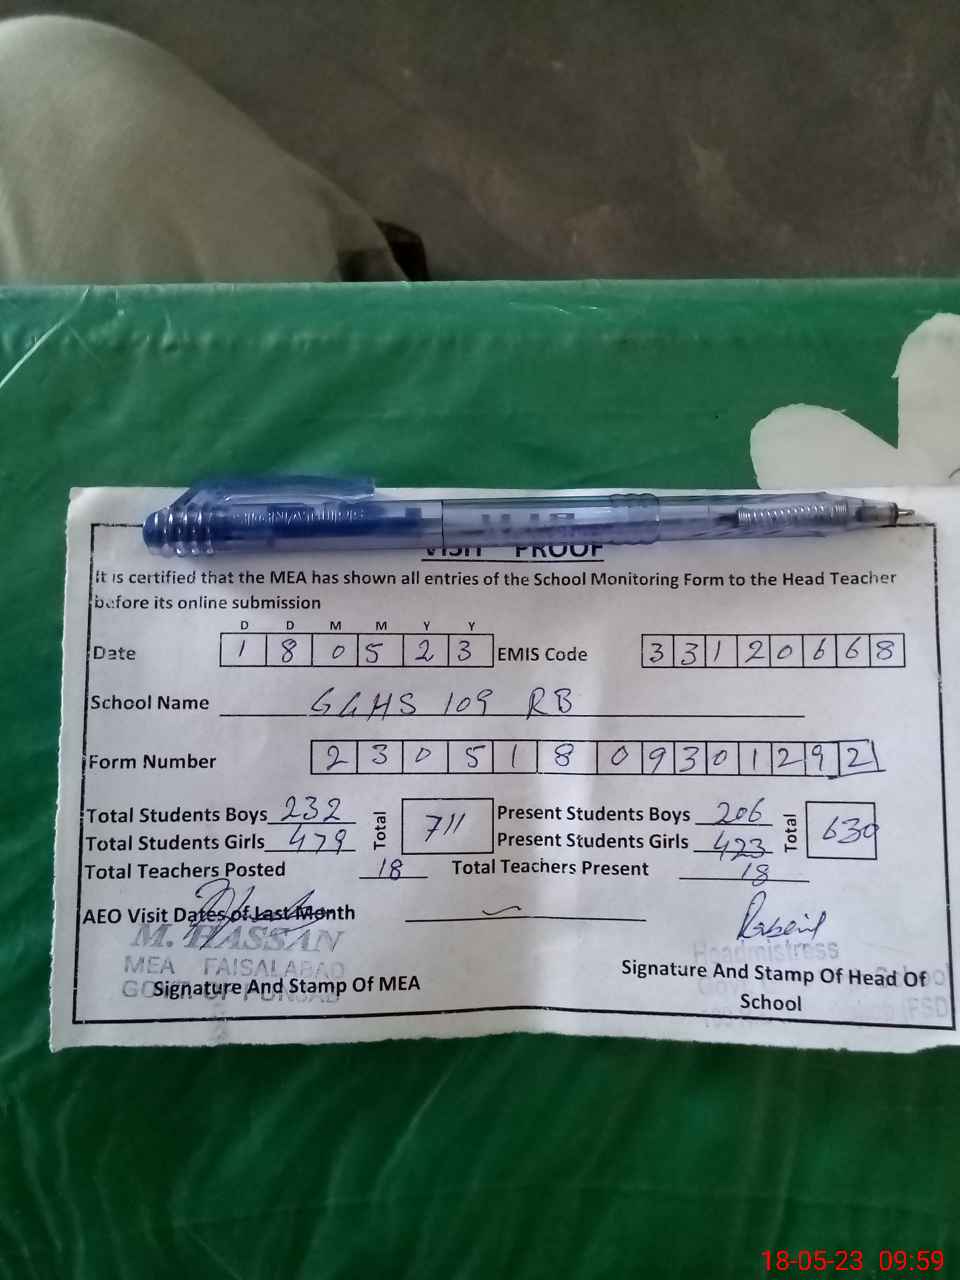 VISIT PROOF
It is certified that the MEA has shown all entries of the School Monitoring Form to the Head Teacher
before its online submission
D D M M Y Y
Date 1 8 0 5 2 3 EMIS Code 3 3 1 2 0 6 6 8
School Name GGHS 109 RB
Form Number 2 3 0 5 1 8 0 9 3 0 1 2 9 2
Total Students Boys 232 Total 711 Present Students Boys 206 Total 630
Total Students Girls 479 Present Students Girls 423
Total Teachers Posted 18 Total Teachers Present 18
AEO Visit Dates of Last Month
M. HASSAN
MEA FAISALABAD
GOVT. OF PUNJAB
Signature And Stamp Of MEA
Headmistress
School
Signature And Stamp Of Head Of
School
(FSD
18-05-23 09:59